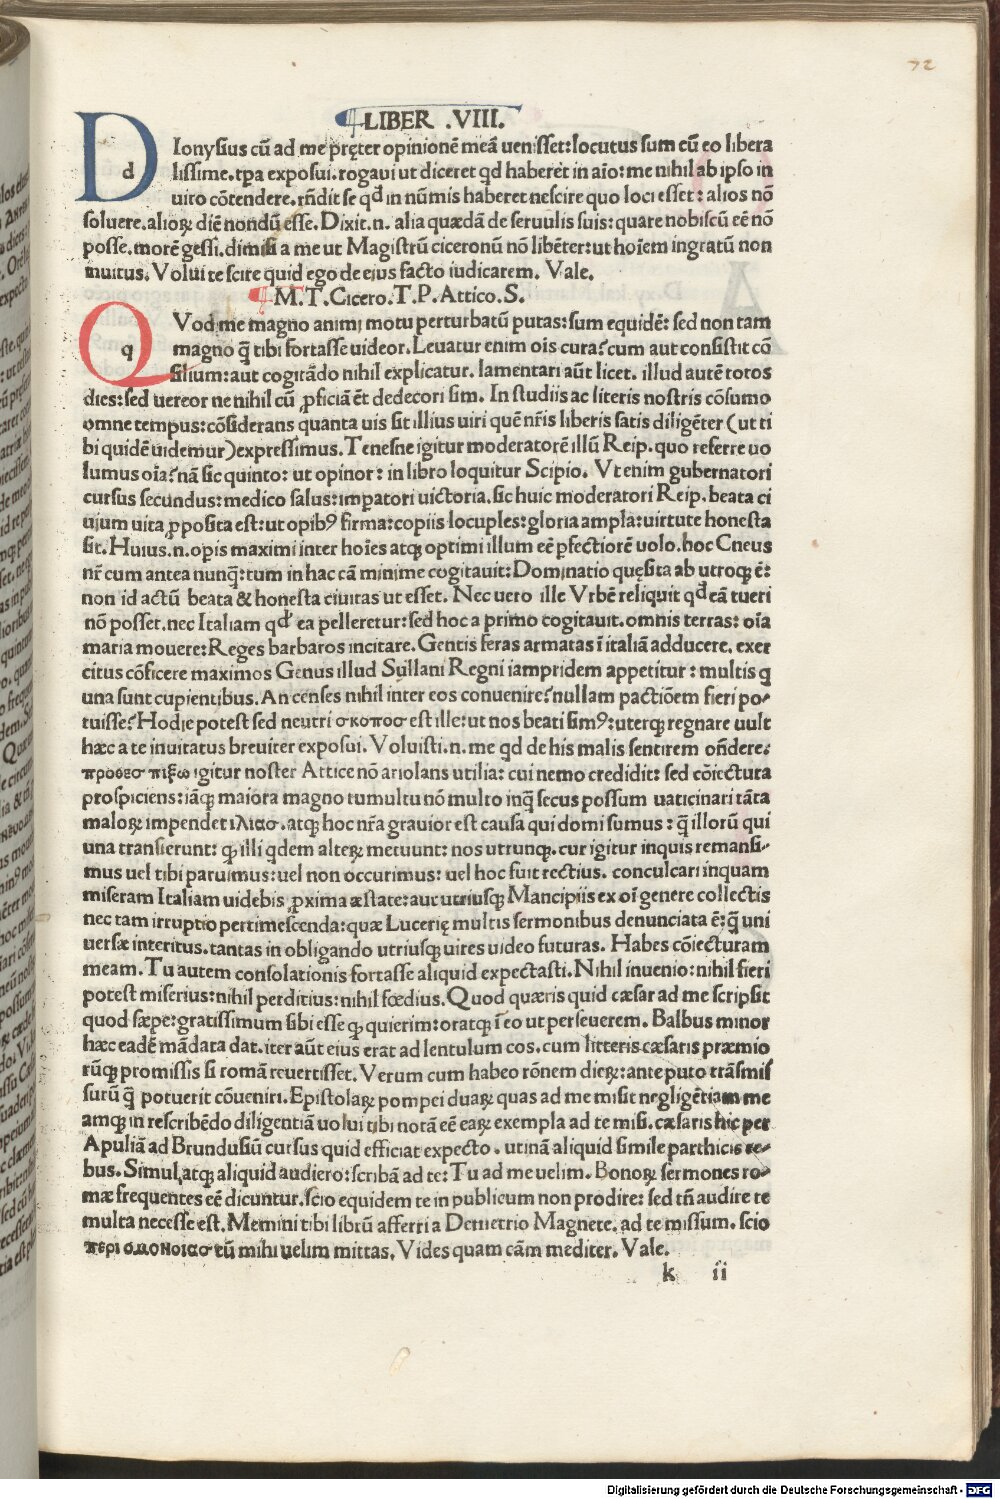 72
LIBER .VIII.
DIonysius cũ ad me pręter opinionẽ meã uenisset: locutus sum cũ eo libera
d lissime. tpa exposui. rogaui ut diceret qd haberet in aĩo: me nihil ab ipso in
uito cõtendere. rñdit se qđ in nũmis haberet nescire quo loci esset: alios nõ
soluere. alioꝝ diẽ nondũ esse. Dixit .n. alia quædã de seruulis suis: quare nobiscũ eẽ nõ
posse. morẽ gessi. dimisi a me ut Magistrũ ciceronũ nõ libẽter: ut hoĩem ingratũ non
inuitus. Volui te scire quid ego de eius facto iudicarem. Vale.
M.T.Cicero.T.P.Attico.S.
QVod me magno animi motu perturbatũ putas: sum equidẽ: sed non tam
q magno q̃ tibi fortasse uideor. Leuatur enim oĩs cura? cum aut consistit cõ
silium: aut cogitãdo nihil explicatur. lamentari aũt licet. illud autẽ totos
dies: sed uereor ne nihil cũ ꝓficiã ẽt dedecori sim. In studiis ac literis nostris cõsumo
omne tempus: cõsiderans quanta uis sit illius uiri quẽ nr̃is liberis satis diligẽter (ut ti
bi quidẽ uidemur) expressimus. Tenesne igitur moderatorẽ illũ Reip. quo referre uo
lumus oĩa? nã sic quinto: ut opinor: in libro loquitur Scipio. Vt enim gubernatori
cursus secundus: medico salus: impatori uictoria. sic huic moderatori Reip. beata ci
uium uita ꝓposita est: ut opibꝰ firma: copiis locuples: gloria ampla: uirtute honesta
sit. Huius .n. opis maximi inter hoĩes atqꝫ optimi illum eẽ ꝑfectiorẽ uolo. hoc Cneus
nr̃ cum antea nunq̃: tum in hac cã minime cogitauit: Dominatio quęsita ab utroqꝫ ẽ:
non id actũ beata & honesta ciuitas ut esset. Nec uero ille Vrbẽ reliquit qđ eã tueri
nõ posset. nec Italiam qđ ea pelleretur: sed hoc a primo cogitauit. omnis terras: oĩa
maria mouere: Reges barbaros incitare. Gentis feras armatas ĩ italiã adducere. exer
citus cõficere maximos Genus illud Syllani Regni iampridem appetitur: multis q
una sunt cupientibus. An censes nihil inter eos conuenire? nullam pactiõem fieri po-
tuisse? Hodie potest sed neutri σκοποσ est ille: ut nos beati simꝰ: uterqꝫ regnare uult
hæc a te inuitatus breuiter exposui. Voluisti .n. me qd de his malis sentirem oñdere.
προθεσ πιξω igitur noster Attice nõ ariolans utilia: cui nemo credidit: sed cõiectura
prospiciens: iãqꝫ maiora magno tumultu nõ multo inq̃ secus possum uaticinari tãta
maloꝝ impendet ιλιασ. atqꝫ hoc nr̃a grauior est causa qui domi sumus: q̃ illorũ qui
una transierunt: qꝫ illi qdem alteꝝ metuunt: nos utrunqꝫ. cur igitur inquis remansi-
mus uel tibi paruimus: uel non occurimus: uel hoc fuit rectius. conculcari inquam
miseram Italiam uidebis ꝓxima æstate: aut utriusqꝫ Mancipiis ex oĩ genere collectis
nec tam irruptio pertimescenda: quæ Lucerię multis sermonibus denunciata ẽ: q̃ uni
uersæ interitus. tantas in obligando utriusqꝫ uires uideo futuras. Habes cõiecturam
meam. Tu autem consolationis fortasse aliquid expectasti. Nihil inuenio: nihil fieri
potest miserius: nihil perditius: nihil fœdius. Quod quæris quid cæsar ad me scripsit
quod sæpe: gratissimum sibi esse qꝫ quierim: oratqꝫ ĩ eo ut perseuerem. Balbus minor
hæc eadẽ mãdata dat. iter aũt eius erat ad lentulum cos. cum litteris cæsaris præmio
rũqꝫ promissis si romã reuertisset. Verum cum habeo rõnem dieꝝ: ante puto trãsmis
surũ q̃ potuerit cõueniri. Epistolaꝝ pompei duaꝝ quas ad me misit negligẽtiam me
amqꝫ in rescribẽdo diligentiã uolui tibi notã eẽ eaꝝ exempla ad te misi. cæsaris hic per
Apuliã ad Brundusiũ cursus quid efficiat expecto. utinã aliquid simile parthicis re-
bus. Simul atqꝫ aliquid audiero: scribã ad te: Tu ad me uelim. Bonoꝝ sermones ro-
mæ frequentes eẽ dicuntur. scio equidem te in publicum non prodire: sed tñ audire te
multa necesse est. Memini tibi librũ afferri a Demetrio Magnete. ad te missum. scio
περι ομονοιασ tũ mihi uelim mittas. Vides quam cãm mediter. Vale.
k ii
Digitalisierung gefördert durch die Deutsche Forschungsgemeinschaft - DFG